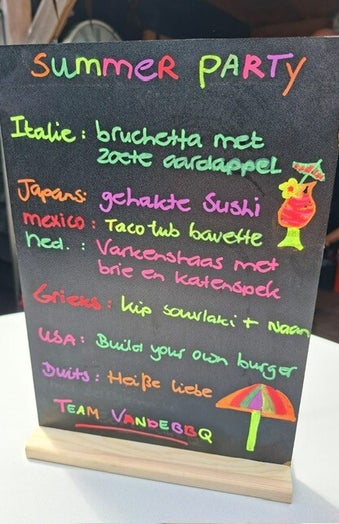 Summer PARTY
Italie: bruchetta met
zoete aardappel
Japans: gehakte Sushi
mexico: Taco tub bavette
ned.: Varkenshaas met
brie en katenspek
Grieks: kip souvlaki + Naan
USA: Build your own burger
Duits: Heiße liebe
TEAM VANDEBBQ